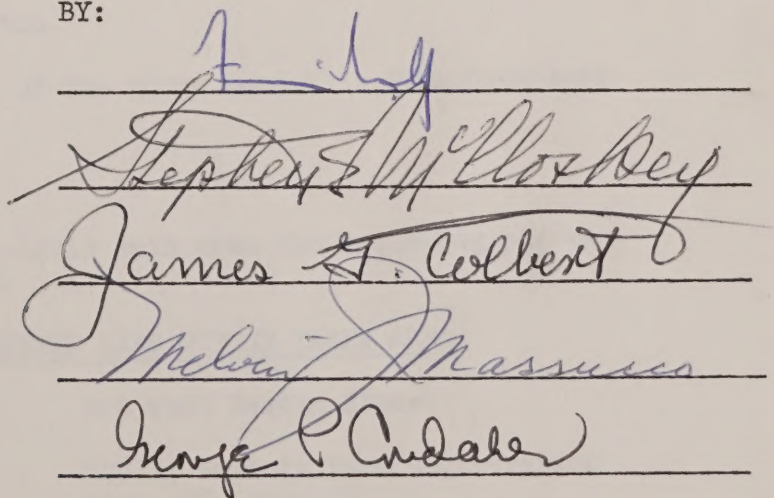 BY:
Stephen E. McCloskey
James G. Colbert
Melvin J. Massucco
George P. Condakes